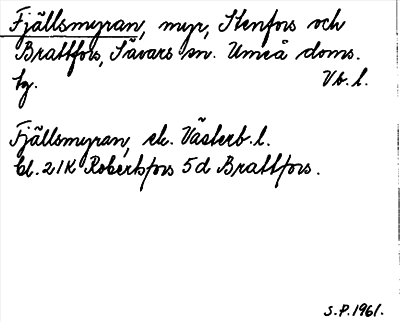 Fjällsmyran, myr, Stenfors och
Brattfors, Sävars sn. Umeå doms.
hg. Vb. l.
Fjällsmyran, ek. Västerb. l.
bl. 21K Robertsfors 5d Brattfors.
S.P. 1961.